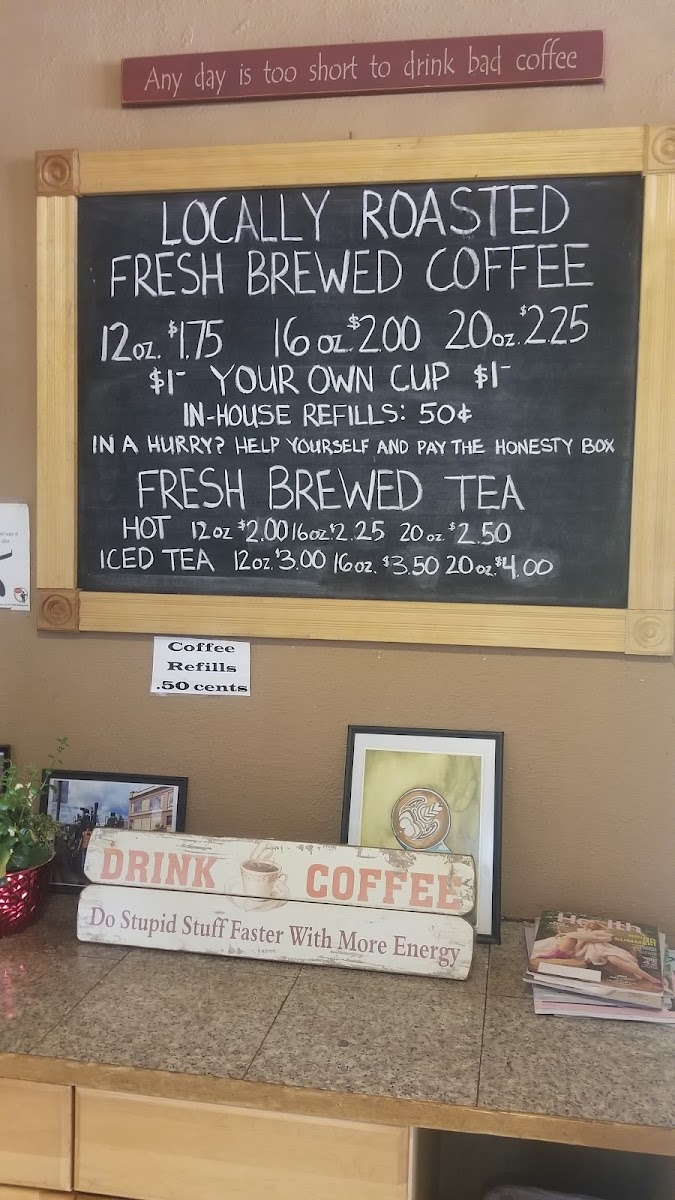 Any day is too short to drink bad coffee
LOCALLY ROASTED
FRESH BREWED COFFEE
12oz. $1.75 16 oz. $2.00 20oz. $2.25
$1- YOUR OWN CUP $1-
IN-HOUSE REFILLS: 50¢
IN A HURRY? HELP YOURSELF AND PAY THE HONESTY BOX
FRESH BREWED TEA
HOT 12oz $2.00 16oz $2.25 20 oz. $2.50
ICED TEA 12oz. $3.00 16oz. $3.50 20oz. $4.00
Coffee
Refills
.50 cents
DRINK COFFEE
Do Stupid Stuff Faster With More Energy
Health